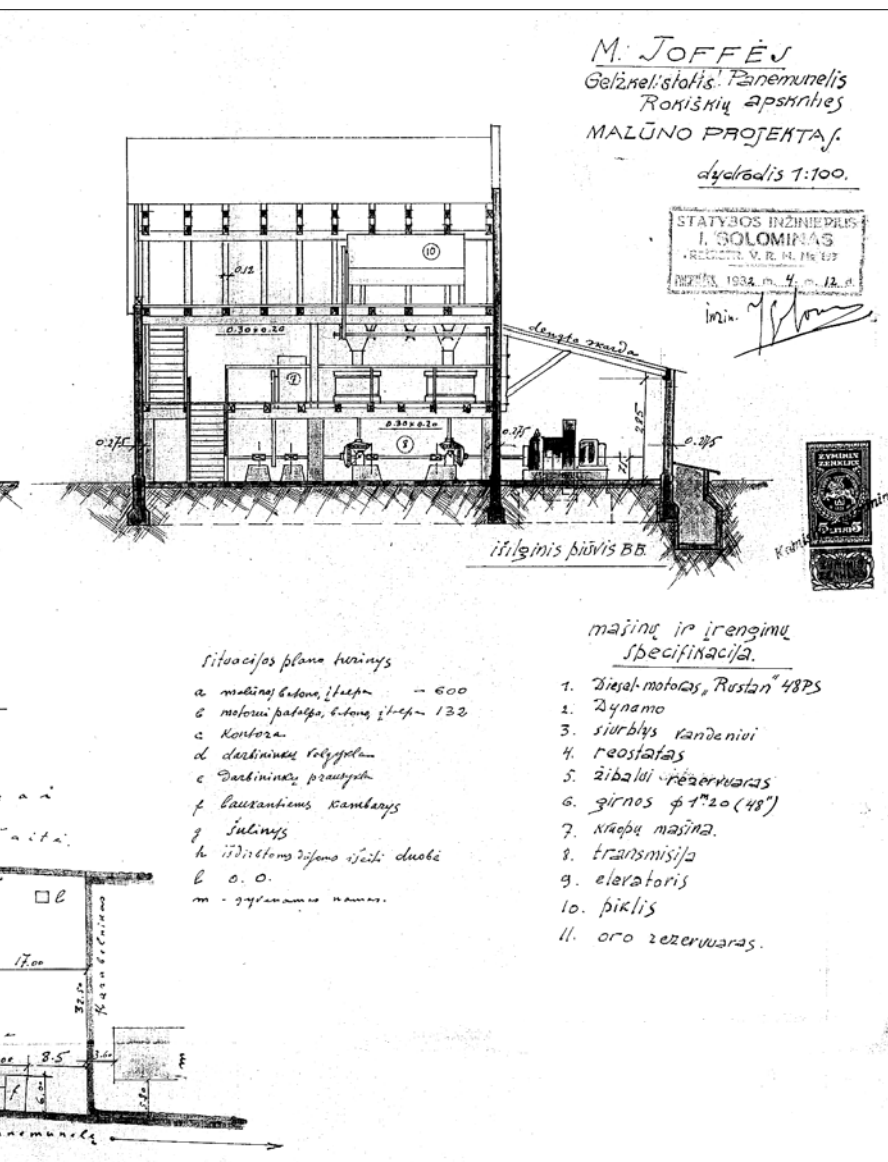 M. JOFFĖS
Gelžkel. stotis. Panemunelis
Rokiškių apskrities
MALŪNO PROJEKTAS.
dydrodis 1:100.
STATYBOS INŽINIERIUS
I. SOLOMINAS
V. R. M. №
1932 m. 4. m. 12. d.
inžin.
10
0.12
0.30 x 0.20
dengta skarda
7
0.30 x 0.20
8
0.275
0.275
2.25
0.275
išilginis piūvis BB.
ŽYMINIS
ŽENKLAS
5 LITAI 5
situacijos plano turinys
a malūnas betono, įtalpa – 600
b motorui patalpa, betono, įtalpa – 132
c Kontora
d darbininkų valgykla
e Darbininkų prausykla
f laukantiems kambarys
g šulinys
h išdirbtoms dujoms išeiti duobė
l O. O.
m - gyvenamas namas.
mašinų ir įrengimų
specifikacija.
1. Diesel-motoras „Rustan" 48PS
2. Dynamo
3. siurblys vandeniui
4. reostatas
5. žibalui rezervuaras
6. girnos ϕ 1m20 (48")
7. kruopų mašina.
8. transmisija
9. elevatoris
10. piklis
11. oro rezervuaras.
l
17.00
32.50
8.5
3.60
m
f
6.00
5.80